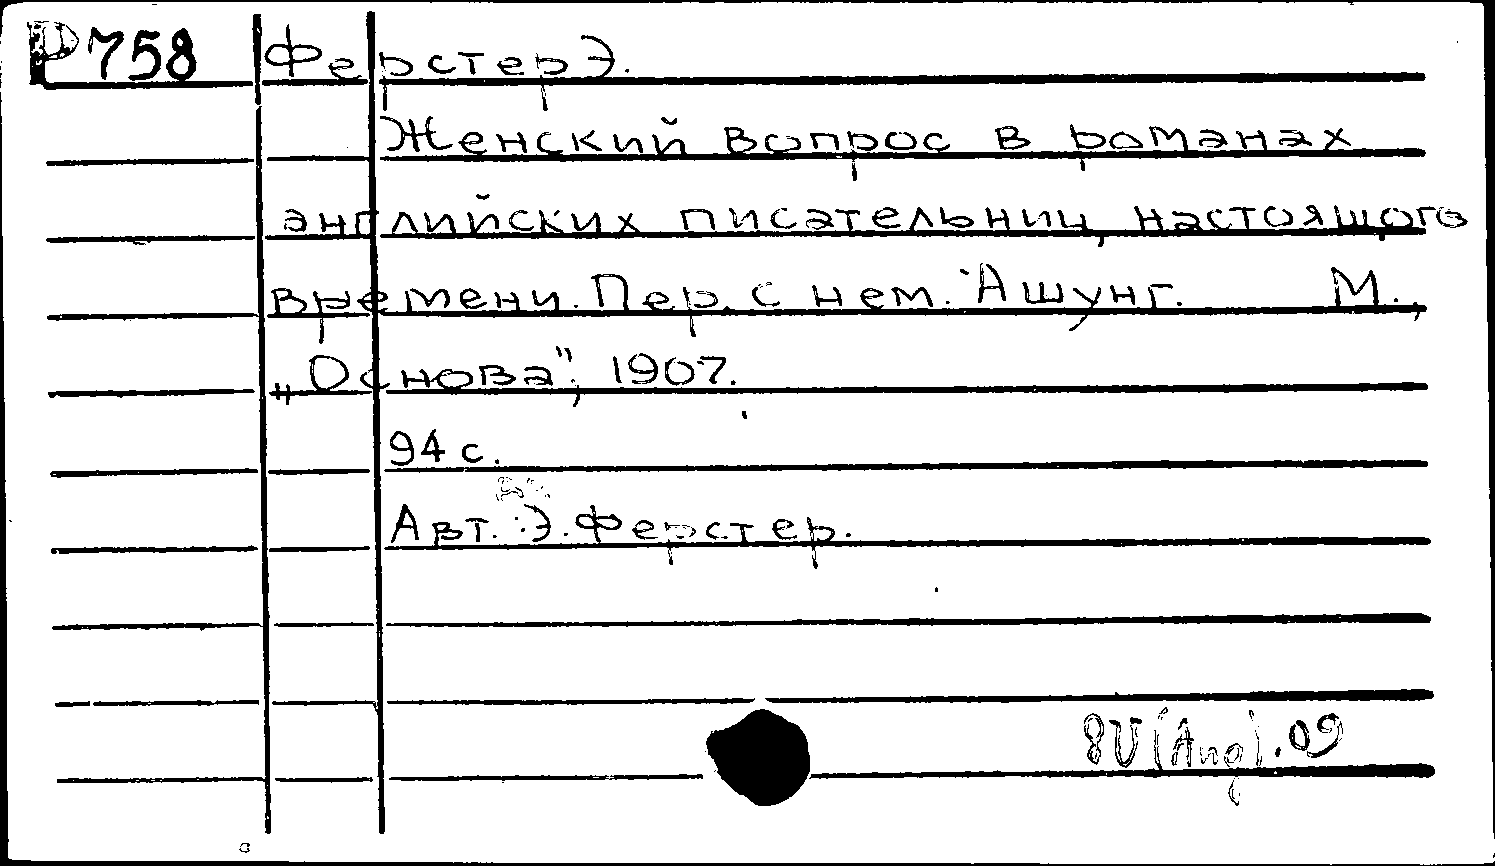 Р758 Ферстер Э.
Женский вопрос в романах
английских писательниц настоящого
времени. Пер. с нем. Ашунг. М.,
„Основа", 1907.
94 с.
Авт. Э. Ферстер.
8U(Ang).09